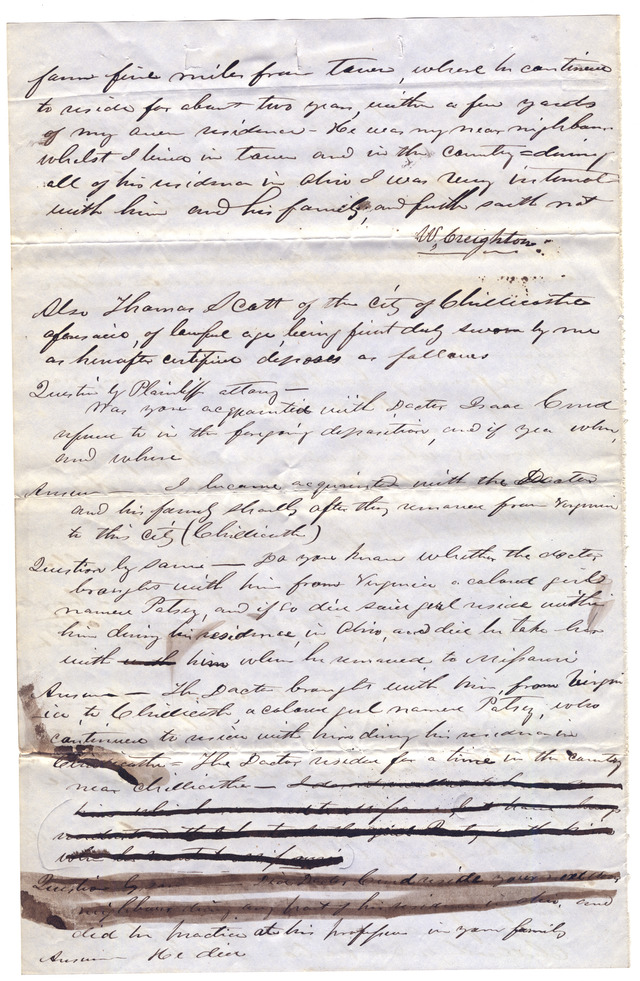 farm five miles from town, where he continued
to reside for about two years, within a few yards
of my own residence - He was my near neighbour
whilst I lived in town and in the country - during
all of his residence in Ohio I was very intimate
with him and his family, and further saith not
W. Creighton
Also Thomas Scott of the city of Chillicothe
aforesaid, of lawful age, being first duly sworn by me
as hereinafter certified deposes as follows
Question by Plaintiff attony -
Was you acquainted with Doctor Isaac
refered to in the foregoing deposition, and if yea when,
and where
Answer - I became acquainted with the Doctor
and his family shortly after they removed from Virginia
to this city (Chillicothe)
Question by same - Do you know whether the doctor
brought with him from Virginia a colored girl
named Patsey, and if so did said girl reside with
him during his residence, in Ohio, and did he take her
with him when he removed, to Missouri
Answer - The Doctor brought with him, from Virgin
ia, to Chillicothe, a colored girl named Patsey, who
continued to reside with him during his residence in
Chillicothe - The Doctor resided for a time in the country
near Chillicothe -
Question by
neighbour any part of his residence in Ohio, and
did he practice at his profession in your family
Answer - He did